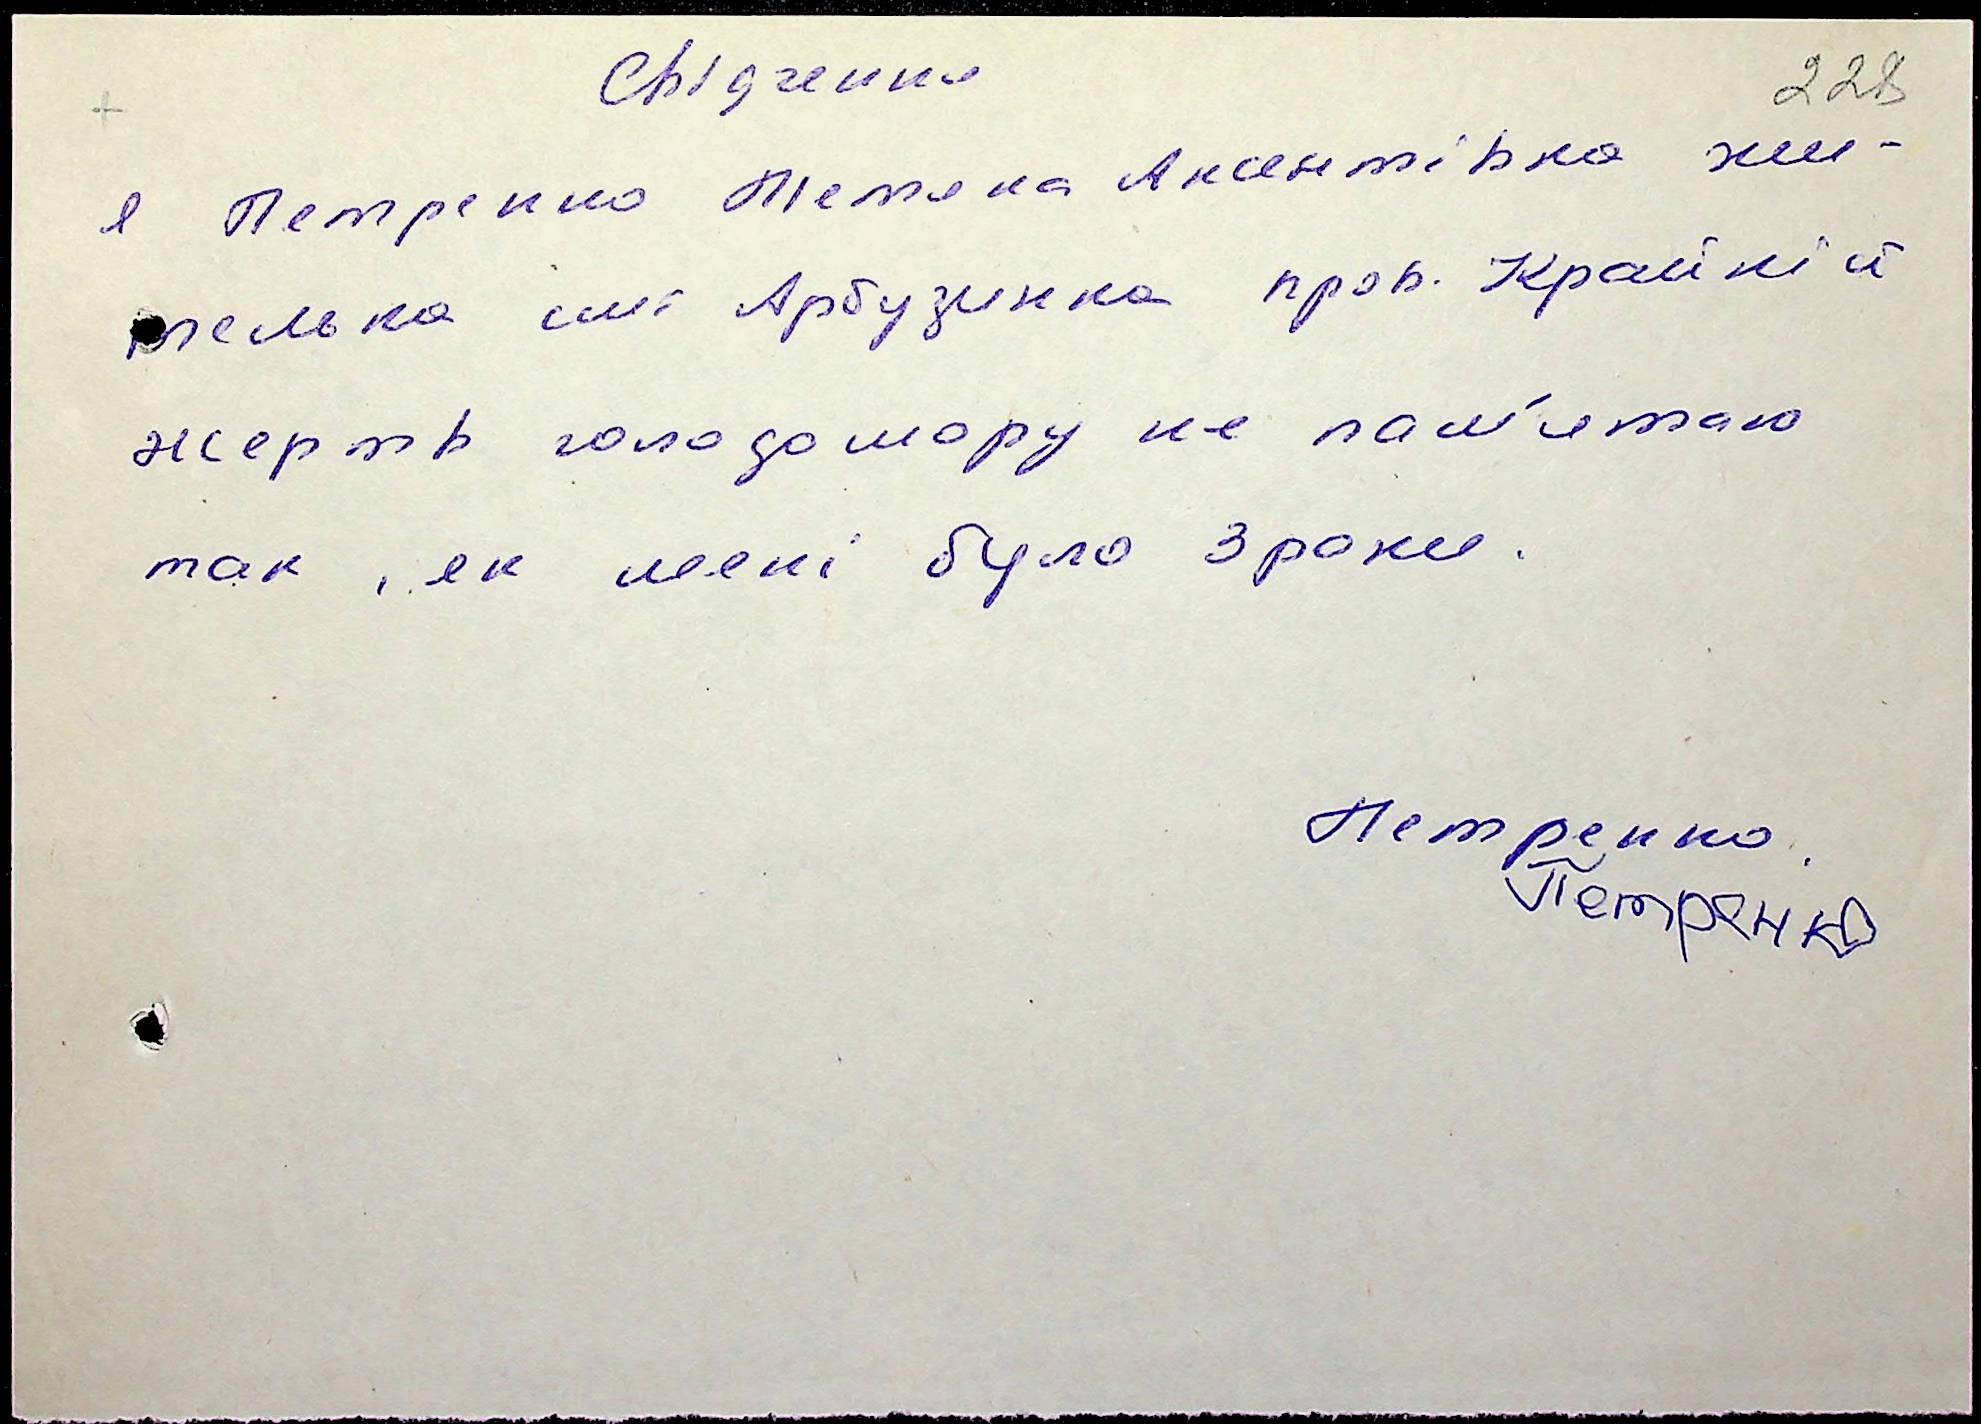 Свідчення
228
я Петренко Тетяна Аксентівна жи-
телька смт Арбузинка пров. Крайній
жертв голодомору не пам'ятаю
так, як мені було 3 роки.
Петренко.
Петренко